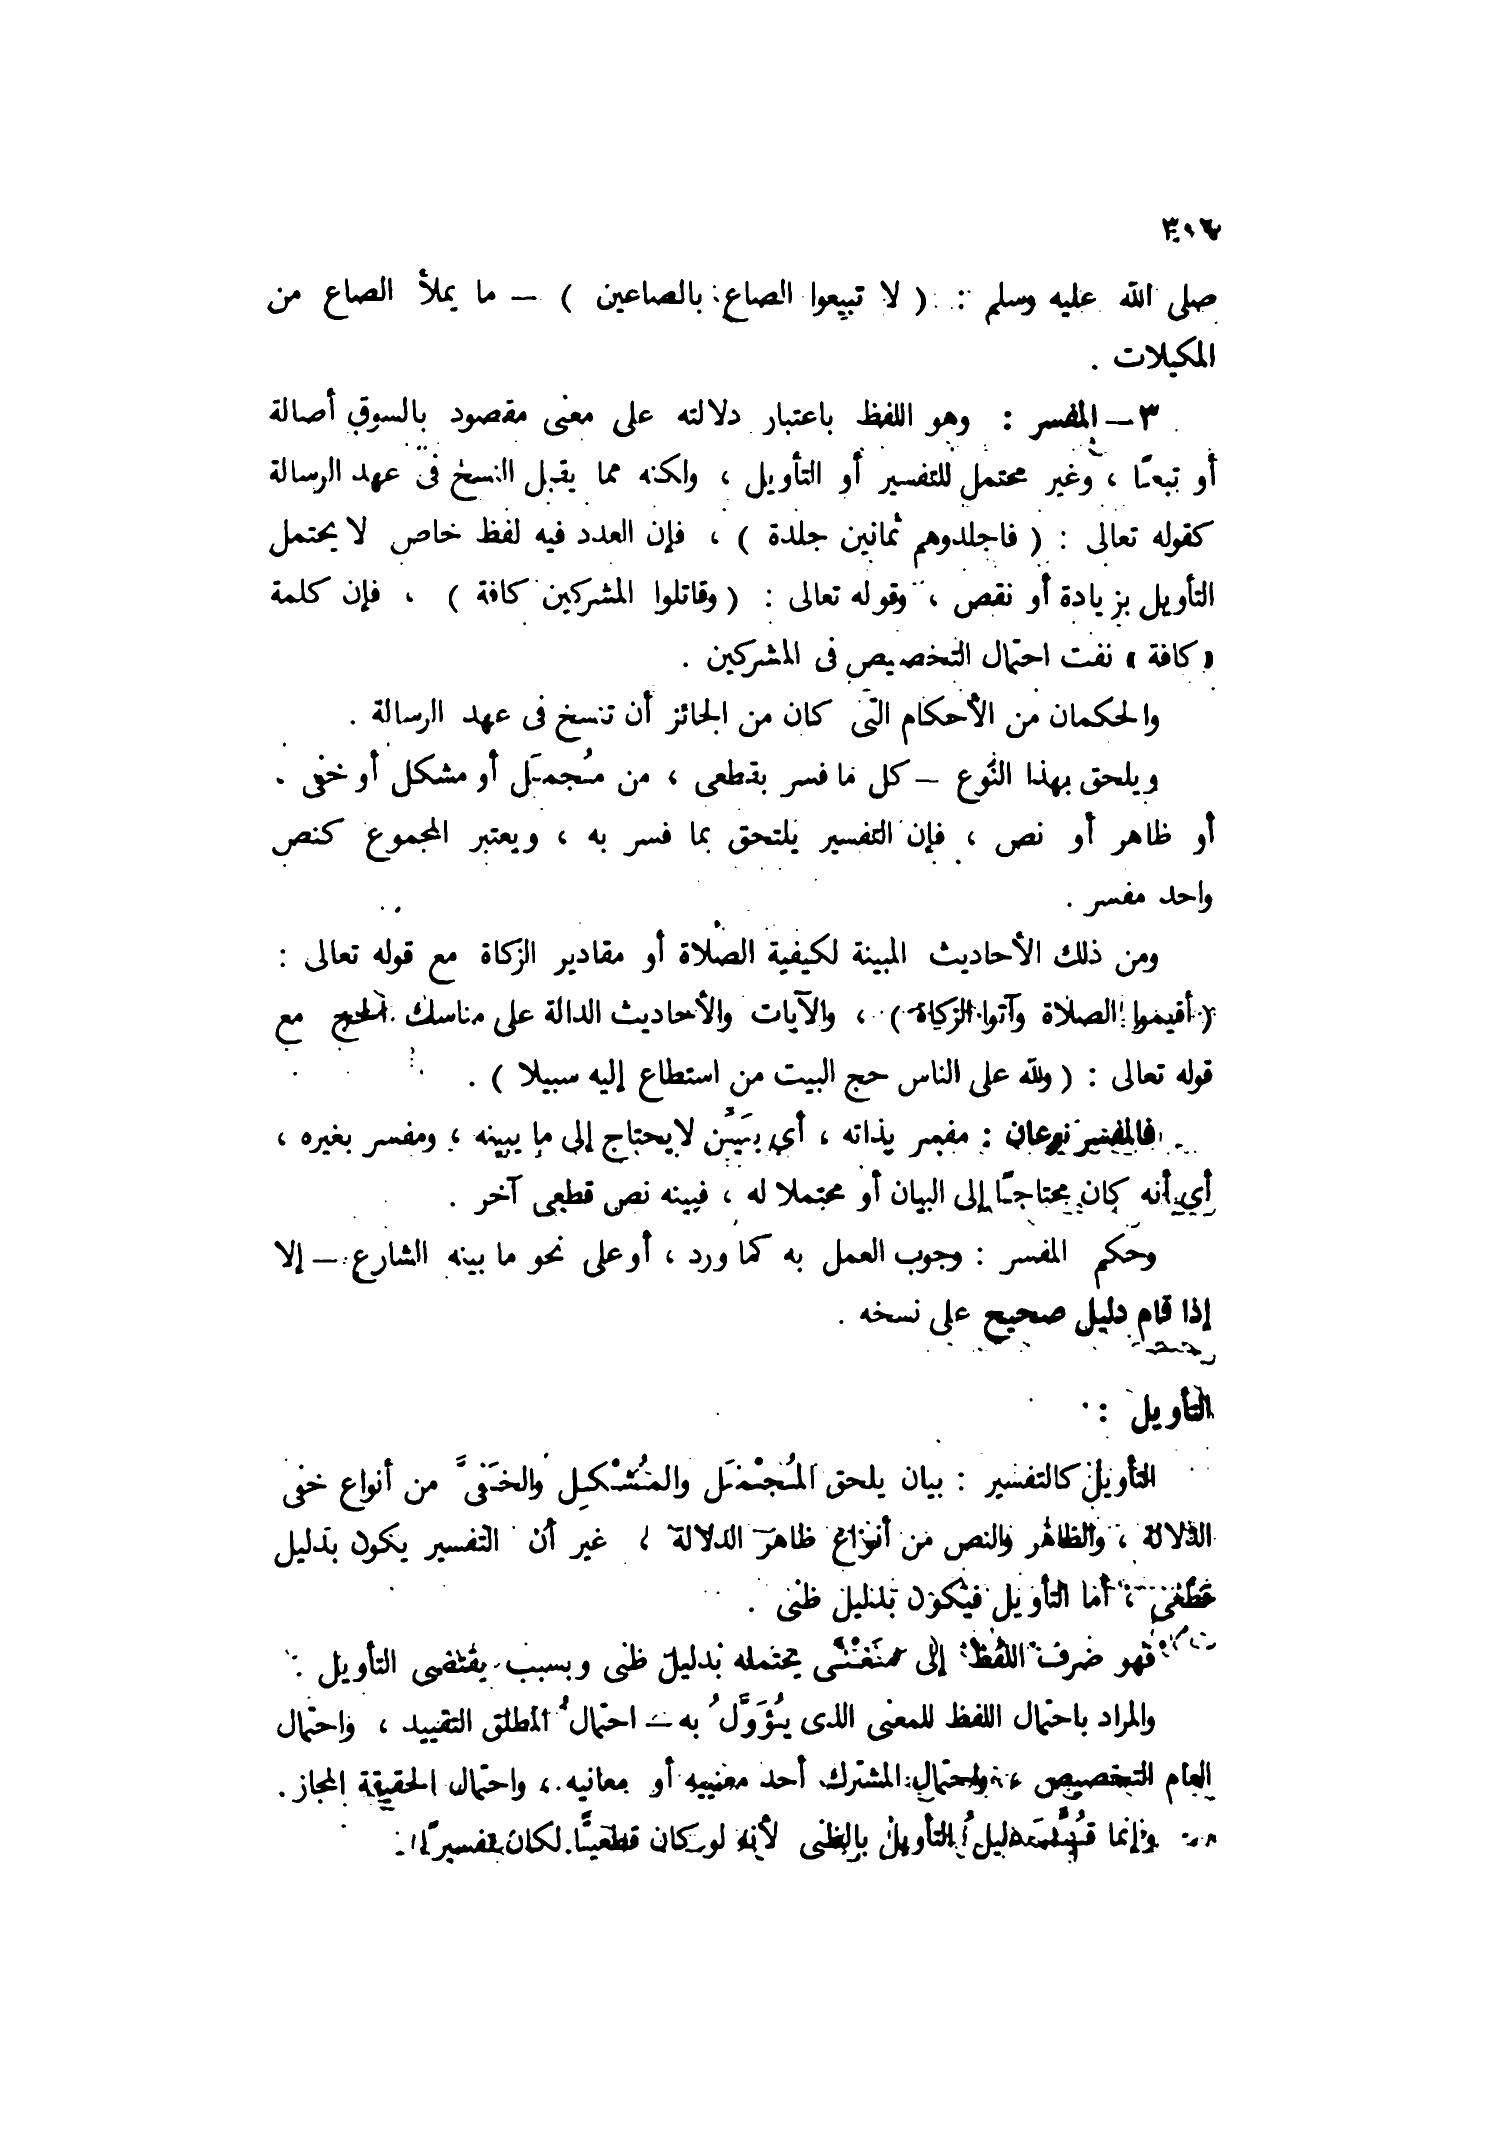 صلى الله عليه وسلم : ( لا تبيعوا الصاع بالصاعين ) – ما يملأ الصاع من
المكيلات .
٣ – المفسر : وهو اللفظ باعتبار دلالته على معنى مقصود بالسوق أصالة
أو تبعًا ، وغير محتمل للتفسير أو التأويل ، ولكنه مما يقبل النسخ فى عهد الرسالة
كقوله تعالى : ( فاجلدوهم ثمانين جلدة ) ، فإن العدد فيه لفظ خاص لا يحتمل
التأويل بزيادة أو نقص ، وقوله تعالى : ( وقاتلوا المشركين كافة ) ، فإن كلمة
« كافة » نفت احتمال التخصيص فى المشركين .
والحكمان من الأحكام التى كان من الجائز أن تنسخ فى عهد الرسالة .
ويلحق بهذا النوع – كل ما فسر بقطعى ، من مُجمَل أو مشكل أو خفى .
أو ظاهر أو نص ، فإن التفسير يلتحق بما فسر به ، ويعتبر المجموع كنص
واحد مفسر .
ومن ذلك الأحاديث المبينة لكيفية الصلاة أو مقادير الزكاة مع قوله تعالى :
( أقيموا الصلاة وآتوا الزكاة ) ، والآيات والأحاديث الدالة على مناسك الحج مع
قوله تعالى : ( ولله على الناس حج البيت من استطاع إليه سبيلا ) .
فالمفسر نوعان : مفسر بذاته ، أي بَيِّن لا يحتاج إلى ما يبينه ، ومفسر بغيره ،
أي أنه كان محتاجًا إلى البيان أو محتملا له ، فبينه نص قطعى آخر .
وحكم المفسر : وجوب العمل به كما ورد ، أو على نحو ما بينه الشارع – إلا
إذا قام دليل صحيح على نسخه .
التأويل :
التأويل كالتفسير : بيان يلحق المُجْمَل والمُشْكِل والخَفىَّ من أنواع خفى
الدلالة ، والظاهر والنص من أنواع ظاهر الدلالة ، غير أن التفسير يكون بدليل
قطعى ، أما التأويل فيكون بدليل ظنى .
فهو صرف اللفظ إلى مَعْنَى يحتمله بدليل ظنى وبسبب يقتضى التأويل .
والمراد باحتمال اللفظ للمعنى الذى يُؤَوَّلُ به – احتمالُ المطلق التقييد ، واحتمال
العام التخصيص ، واحتمال المشترك أحد معنييه أو معانيه ، واحتمال الحقيقة المجاز .
وإنما قُيِّدَ دليلُ التأويل بالظنى لأنه لو كان قطعيًّا لكان تفسيرًا .